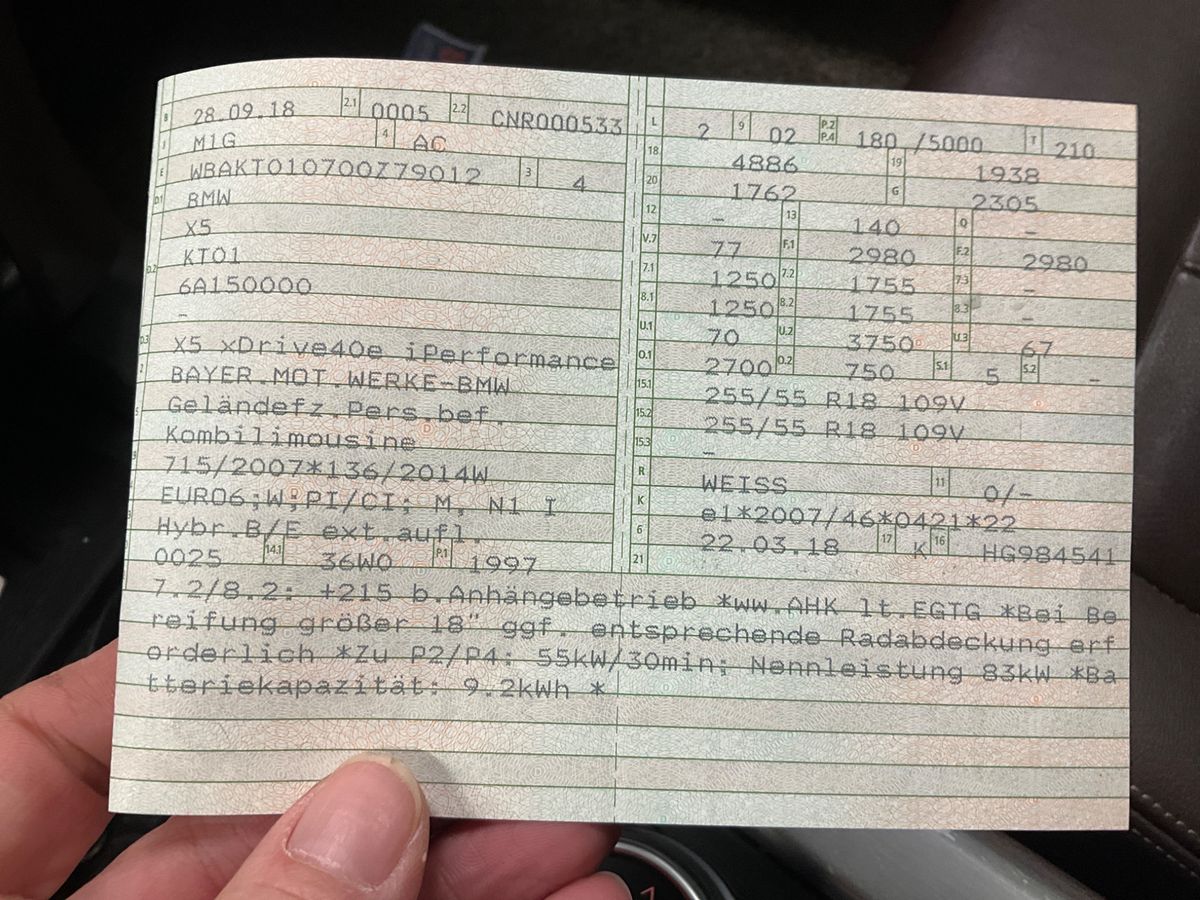 B 28.09.18 2.1 0005 2.2 CNR000533
J M1G 4 AC
E WBAKT010700Z79012 3 4
D.1 BMW
X5
D.2 KT01
6A150000
-
D.3 X5 xDrive40e iPerformance
2 BAYER.MOT.WERKE-BMW
5 Geländefz.Pers.bef.
Kombilimousine
715/2007*136/2014W
EURO6;W;PI/CI; M, N1 I
Hybr.B/E ext.aufl.
0025 14.1 36W0 P.1 1997
L 2 9 02 P.2 P.4 180 /5000 T 210
18 4886 19 1938
20 1762 G 2305
12 - 13 140 Q -
V.7 77 F.1 2980 F.2 2980
7.1 1250 7.2 1755 7.3 -
8.1 1250 8.2 1755 8.3 -
U.1 70 U.2 3750 U.3 67
O.1 2700 O.2 750 S.1 5 S.2 -
15.1 255/55 R18 109V
15.2 255/55 R18 109V
15.3 -
R WEISS 11 0/-
K e1*2007/46*0421*22
6 22.03.18 17 K 16 HG984541
21
7.2/8.2: +215 b.Anhängebetrieb *ww.AHK lt.EGTG *Bei Be
reifung größer 18" ggf. entsprechende Radabdeckung erf
orderlich *Zu P2/P4: 55kW/30min; Nennleistung 83kW *Ba
tteriekapazität: 9.2kWh *